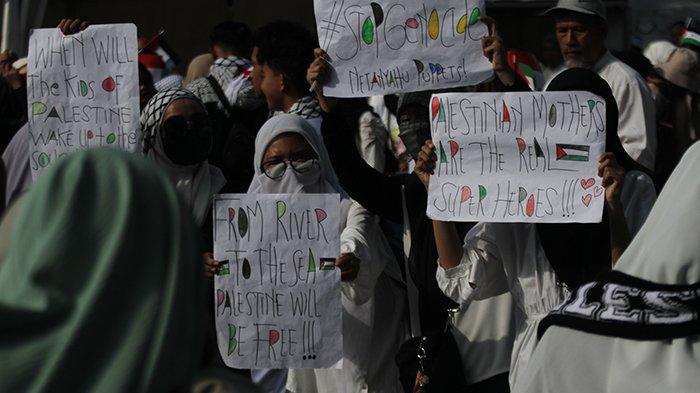 WHEN WILL
THE KIDS OF
PALESTINE
WAKE UP TO THE
#STOP GENOCIDE
NETANYAHU PUPPETS!
PALESTINIAN MOTHERS
ARE THE REAL
SUPER HEROES!!!
FROM RIVER
TO THE SEA
PALESTINE WILL
BE FREE!!!